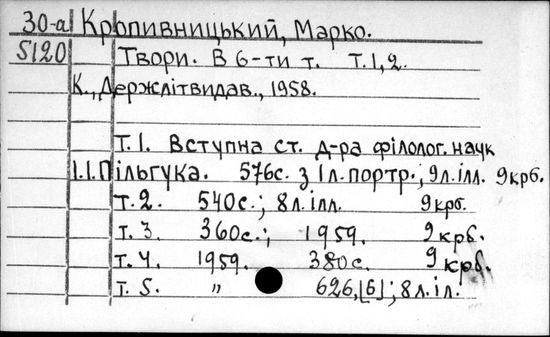 30-а Кропивницький, Марко.
5120 Твори. В 6-ти т. Т.1,2.
К., Держлітвидав., 1958.
Т.1. Вступна ст. д-ра філолог. наук
І.І.Пільгука. 576с. з 1л.портр.; 9л.ілл. 9крб.
Т.2. 540с.; 8л.ілл. 9крб.
т.3. 360с.; 1959. 9крб.
т.4. 1959. 380с. 9крб.
т.5. " 626,[6]; 8л.іл.